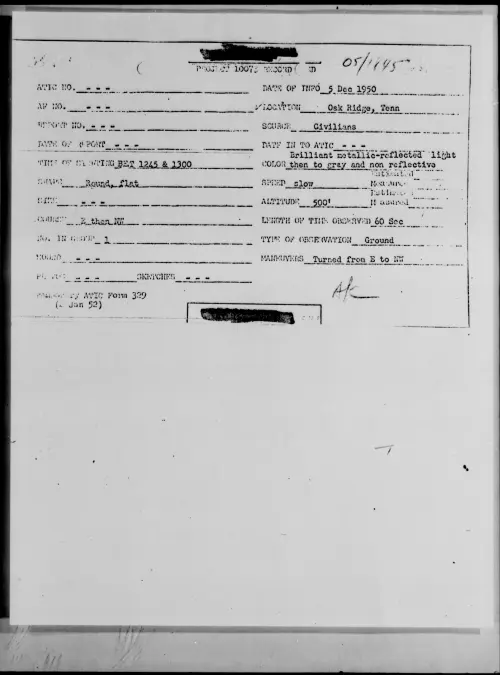 PROJECT 10073 RECORD
ATIC NO. - - -
DATE OF INFO 5 Dec 1950
AF NO. - - -
LOCATION Oak Ridge, Tenn
REPORT NO. - - -
SOURCE Civilians
DATE OF REPORT - - -
DATE IN TO ATIC - - -
TIME OF SIGHTING BET 1245 & 1300
Brilliant metallic-reflected light
COLOR then to gray and non reflective
SHAPE Round, flat
SPEED slow
Estimated
Measured
SIZE - - -
ALTITUDE 500'
Estimated
Measured
COURSE E then NW
LENGTH OF TIME OBSERVED 60 Sec
NO. IN GROUP 1
TYPE OF OBSERVATION Ground
SOUND - - -
MANEUVERS Turned from E to NW
PHOTOS - - - SKETCHES - - -
Temporary ATIC Form 329
(2 Jan 52)